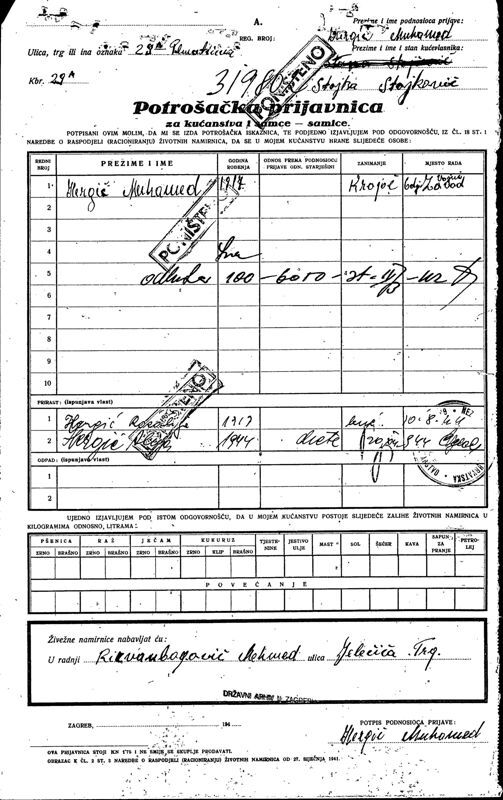 A.
Prezime i ime podnosioca prijave:
REG. BROJ:
Hergić Muhamed
Ulica, trg ili ina oznaka 29a
Prezime i ime i stan kućevlasnika:
Kbr. 29A
31980
Stojka Stojković
PONIŠTENO
Potrošačka prijavnica
za kućanstva i samce — samice.
POTPISANI OVIM MOLIM, DA MI SE IZDA POTROŠAČKA ISKAZNICA, TE PODJEDNO IZJAVLJUJEM POD ODGOVORNOŠĆU, IZ ČL. 18 ST. 1
NAREDBE O RASPODJELI (RACIONIRANJU) ŽIVOTNIH NAMIRNICA, DA SE U MOJEM KUĆANSTVU HRANE SLIJEDEĆE OSOBE:
REDNI BROJ PREZIME I IME GODINA ROĐENJA ODNOS PREMA PODNOSIOCU PRIJAVE ODN. STARJEŠINI ZANIMANJE MJESTO RADA
1 Hergić Muhamed 1917 Krojač Zavod
2
3
PONIŠTENO
4
5
6
7
8
9
10
PRIRAST: (ispunjava vlast)
1 Hergić 1917 10-8-44
2 Hergić 1944 diete 944
PONIŠTENO
HRVATSKA
ODPAD: (ispunjava vlast)
1
2
UJEDNO IZJAVLJUJEM POD ISTOM ODGOVORNOŠĆU, DA U MOJEM KUĆANSTVU POSTOJE SLIJEDEĆE ZALIHE ŽIVOTNIH NAMIRNICA U
KILOGRAMIMA ODNOSNO, LITRAMA:
PŠENICA RAŽ JEČAM KUKURUZ TJESTENINE JESTIVO ULJE MAST SOL ŠEĆER KAVA SAPUN ZA PRANJE PETROLEJ
ZRNO BRAŠNO ZRNO BRAŠNO ZRNO BRAŠNO ZRNO KLIP BRAŠNO
POVEĆANJE
Živežne namirnice nabavljat ću:
U radnji Rizvanbegović Mehmed ulica Jelečića Trg.
DRŽAVNI ARHIV U ZAGREBU
ZAGREB, 194
POTPIS PODNOSIOCA PRIJAVE:
Hergić Muhamed
OVA PRIJAVNICA STOJI KN 1'75 I NE SMIJE SE SKUPLJE PRODAVATI.
OBRAZAC K ČL. 2 ST. 3 NAREDBE O RASPODJELI (RACIONIRANJU) ŽIVOTNIH NAMIRNICA OD 27. SIJEČNJA 1941.